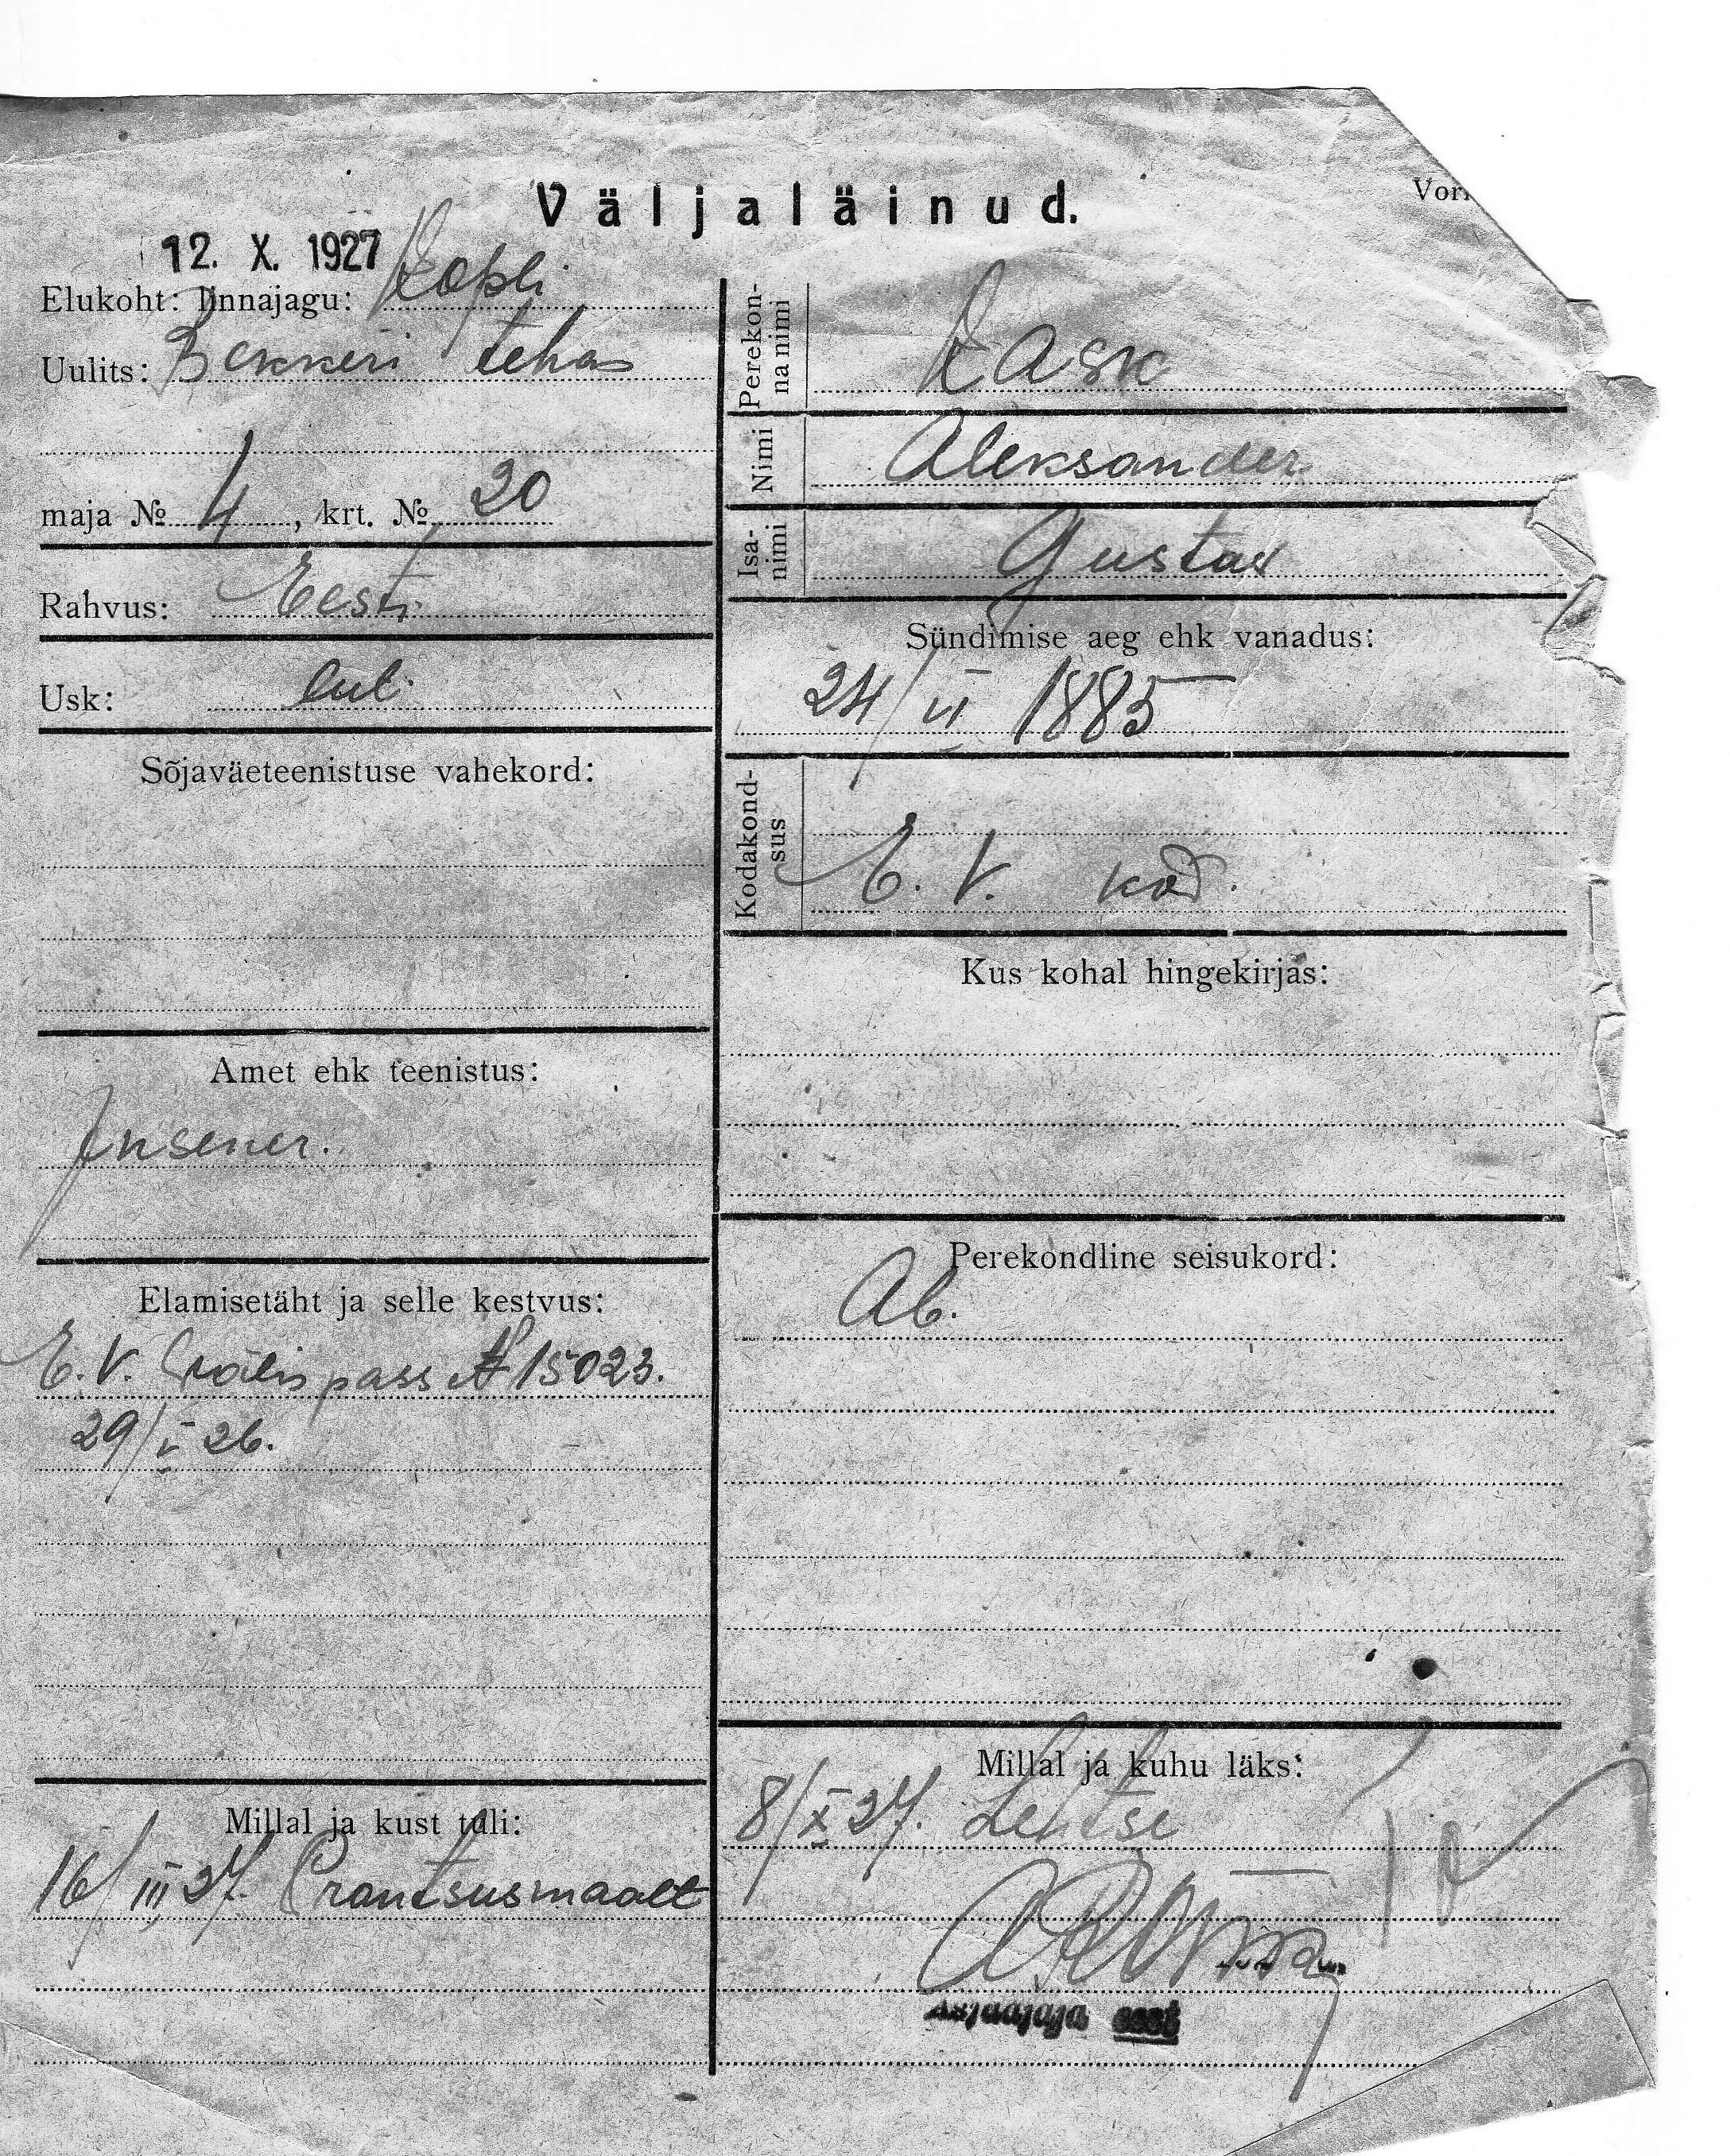 Väljaläinud.
Vor
12. X. 1927
Elukoht: linnajagu: Kopli
Uulits: Bekkeri tehas
maja № 4, krt. № 20
Rahvus: Eesti
Usk: lut.
Sõjaväeteenistuse vahekord:
Amet ehk teenistus:
Insener.
Elamisetäht ja selle kestvus:
E. V. välispass № 15023.
29/V 26.
Millal ja kust tuli:
16/III 27. Prantsusmaalt
Perekonna nimi
Kask
Nimi
Aleksander
Isanimi
Gustav
Sündimise aeg ehk vanadus:
24/VI 1885
Kodakondsus
E. V. kod.
Kus kohal hingekirjas:
Perekondline seisukord:
Ab.
Millal ja kuhu läks:
8/X 27. Lehtse